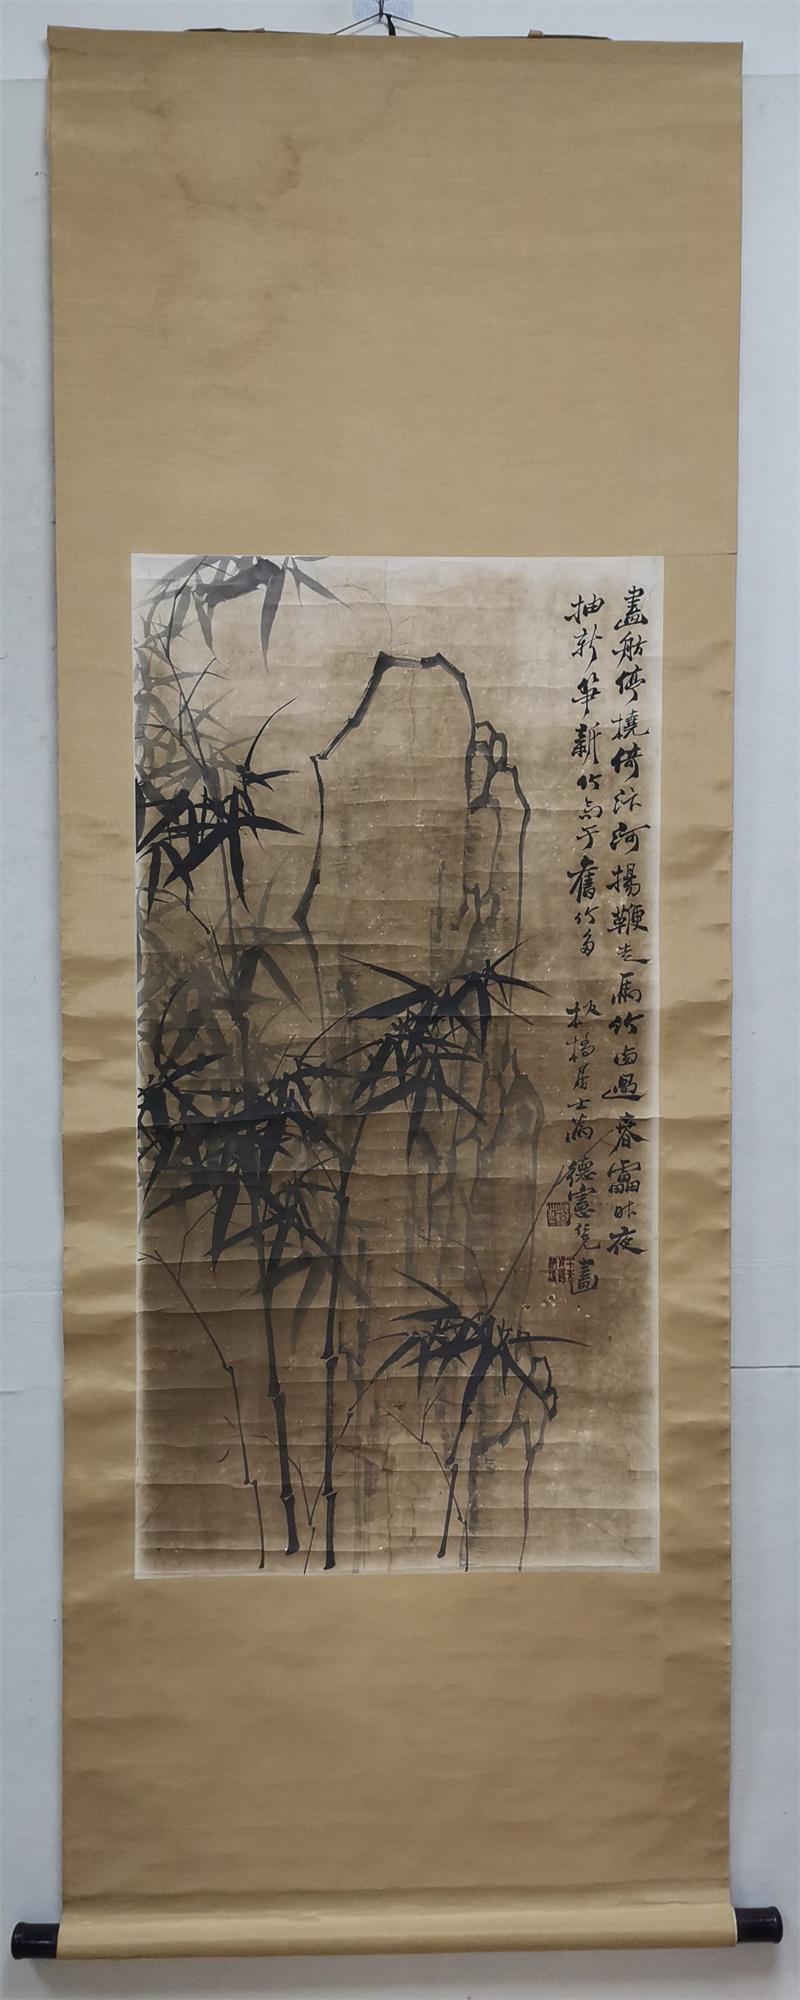 畫舫停橈倚汴河揚鞭走馬竹西過春雷昨夜
抽新笋新竹高于舊竹多 板橋居士為德憲先畫